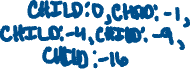 CHILD:0, CHAD:-1,
CHILD:-4, CHILD:-9,
CHILD:-16